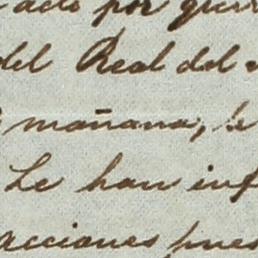 acto por
del Real del
mañana, se
Le han inf
acciones pues